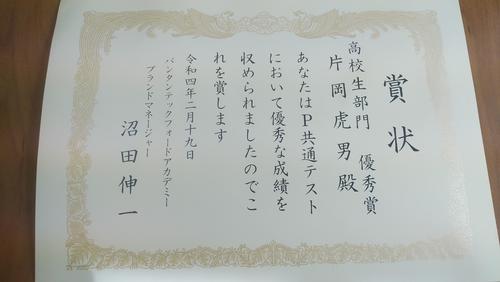 賞状
高校生部門 優秀賞
片岡虎男殿
あなたはP共通テスト
において優秀な成績を
収められましたのでこ
れを賞します
令和四年二月十九日
バンタンテックフォードアカデミー
ブランドマネージャー
沼田伸一